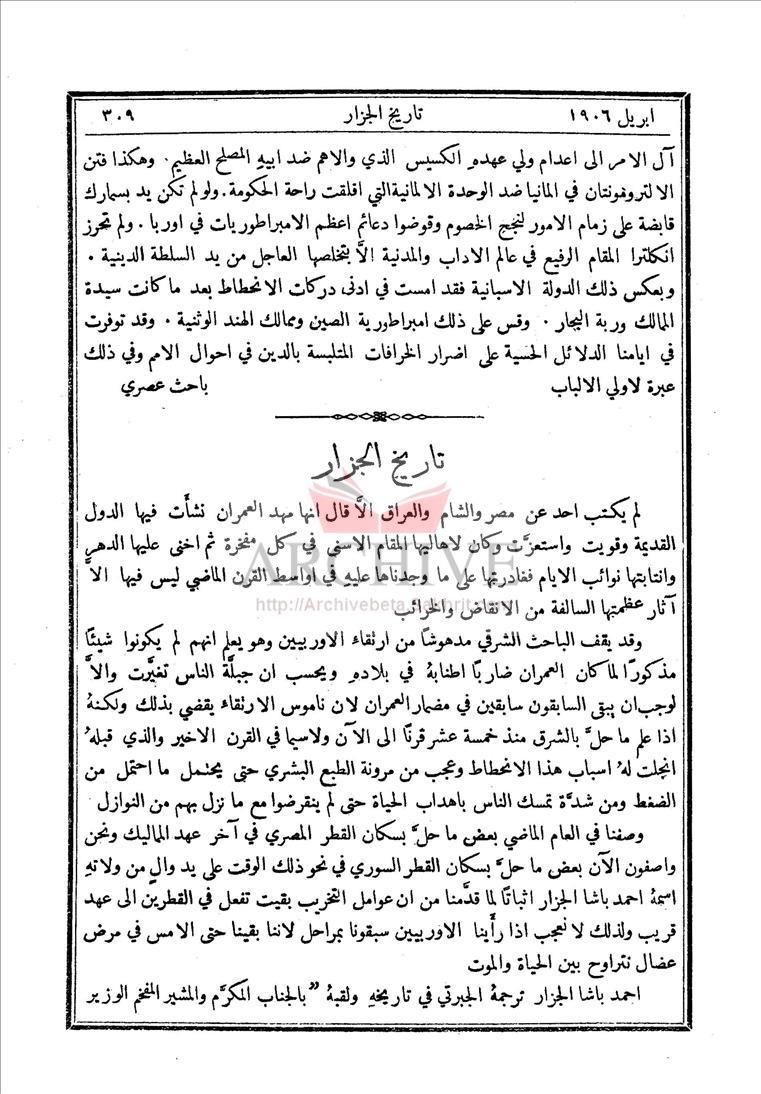 ابريل ١٩٠٦ تاريخ الجزار ٣٠٩
آل الامر الى اعدام ولي عهدهِ الكسيس الذي والاهم ضد ابيهِ المصلح العظيم. وهكذا فتن
الالترومونتان في المانيا ضد الوحدة الالمانية التي اقلقت راحة الحكومة. ولو لم تكن يد بسمارك
قابضة على زمام الامور لنجح الخصوم وقوضوا دعائم اعظم الامبراطوريات في اوربا. ولم تحرز
انكلترا المقام الرفيع في عالم الاداب والمدنية الاَّ بتخلصها العاجل من يد السلطة الدينية.
وبعكس ذلك الدولة الاسبانية فقد امست في ادنى دركات الانحطاط بعد ما كانت سيدة
الممالك وربة البحار. وقس على ذلك امبراطورية الصين وممالك الهند الوثنية. وقد توفرت
في ايامنا الدلائل الحسية على اضرار الخرافات المتلبسة بالدين في احوال الامم وفي ذلك
عبرة لاولي الالباب باحث عصري
تاريخ الجزار
لم يكتب احد عن مصر والشام والعراق الاَّ قال انها مهد العمران نشأَت فيها الدول
القديمة وقويت واستعزَّت وكان لاهاليها المقام الاسنى في كل مفخرة ثم اخنى عليها الدهر
وانتابتها نوائب الايام فغادرتها على ما وجدناها عليهِ في اواسط القرن الماضي ليس فيها الاَّ
آثار عظمتها السالفة من الانقاض والخرائب
وقد يقف الباحث الشرقي مدهوشاً من ارتقاء الاوربيين وهو يعلم انهم لم يكونوا شيئاً
مذكوراً لما كان العمران ضارباً اطنابهُ في بلادهِ ويحسب ان جبلَّة الناس تغيَّرت والاَّ
لوجب ان يبقى السابقون سابقين في مضمار العمران لان ناموس الارتقاء يقضي بذلك ولكنهُ
اذا علم ما حلَّ بالشرق منذ خمسة عشر قرناً الى الآن ولاسيما في القرن الاخير والذي قبلهُ
انجلت لهُ اسباب هذا الانحطاط وعجب من مرونة الطبع البشري حتى يحتمل ما احتمل من
الضغط ومن شدَّة تمسك الناس باهداب الحياة حتى لم ينقرضوا مع ما نزل بهم من النوازل
وصفنا في العام الماضي بعض ما حلَّ بسكان القطر المصري في آخر عهد المماليك ونحن
واصفون الآن بعض ما حلَّ بسكان القطر السوري في نحو ذلك الوقت على يد والٍ من ولاتهِ
اسمهُ احمد باشا الجزار اثباتاً لما قدَّمنا من ان عوامل التخريب بقيت تفعل في القطرين الى عهد
قريب ولذلك لا نعجب اذا رأَينا الاوربيين سبقونا بمراحل لاننا بقينا حتى الامس في مرض
عضال نتراوح بين الحياة والموت
احمد باشا الجزار ترجمهُ الجبرتي في تاريخهِ ولقبهُ "بالجناب المكرَّم والمشير المفخم الوزير
ARCHIVE
http://Archivebeta.Sakhrit.com